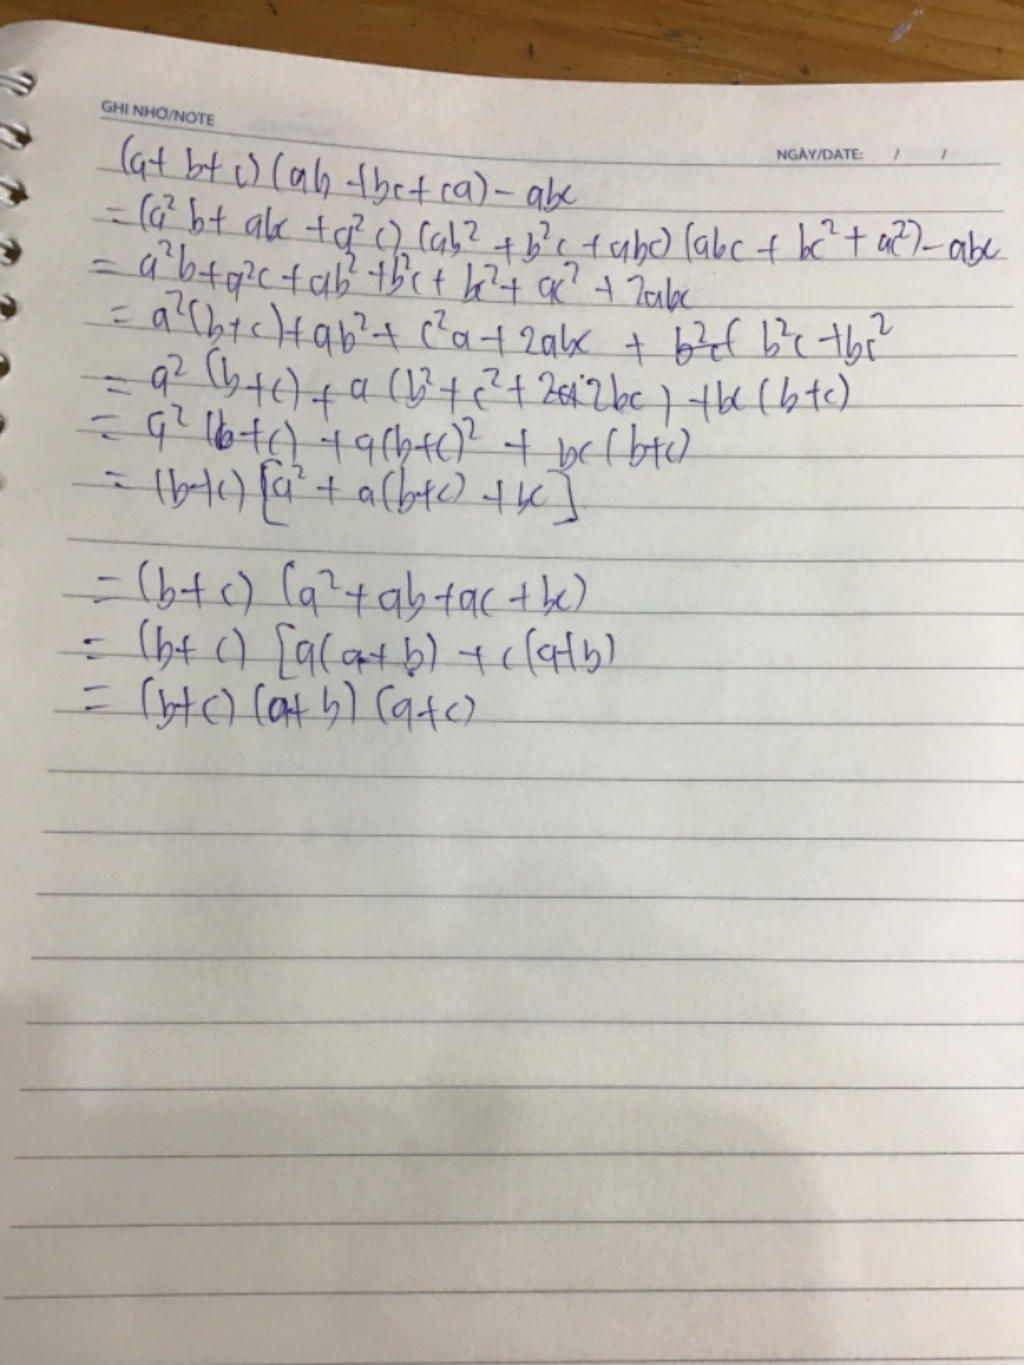 GHI NHỚ/NOTE
NGÀY/DATE: / /
(a+ b+c) (ab +bc+ca) - abc
= (a² b+ abc + a² c) (ab² + b²c + abc) (abc + bc² + ac²) - abc
= a²b+a²c+ab²+b²c+ bc²+ ac² + 2abc
= a²(b+c)+ab²+ c²a+ 2abc + b²c+bc²
= a² (b+c) + a (b²+c²+ 2bc) +bc (b+c)
= a² (b+c) +a(b+c)² + bc (b+c)
= (b+c) [a² + a(b+c) +bc]
= (b+c) (a²+ab+ac+bc)
= (b+c) [a(a+b) +c(a+b)
= (b+c) (a+b) (a+c)